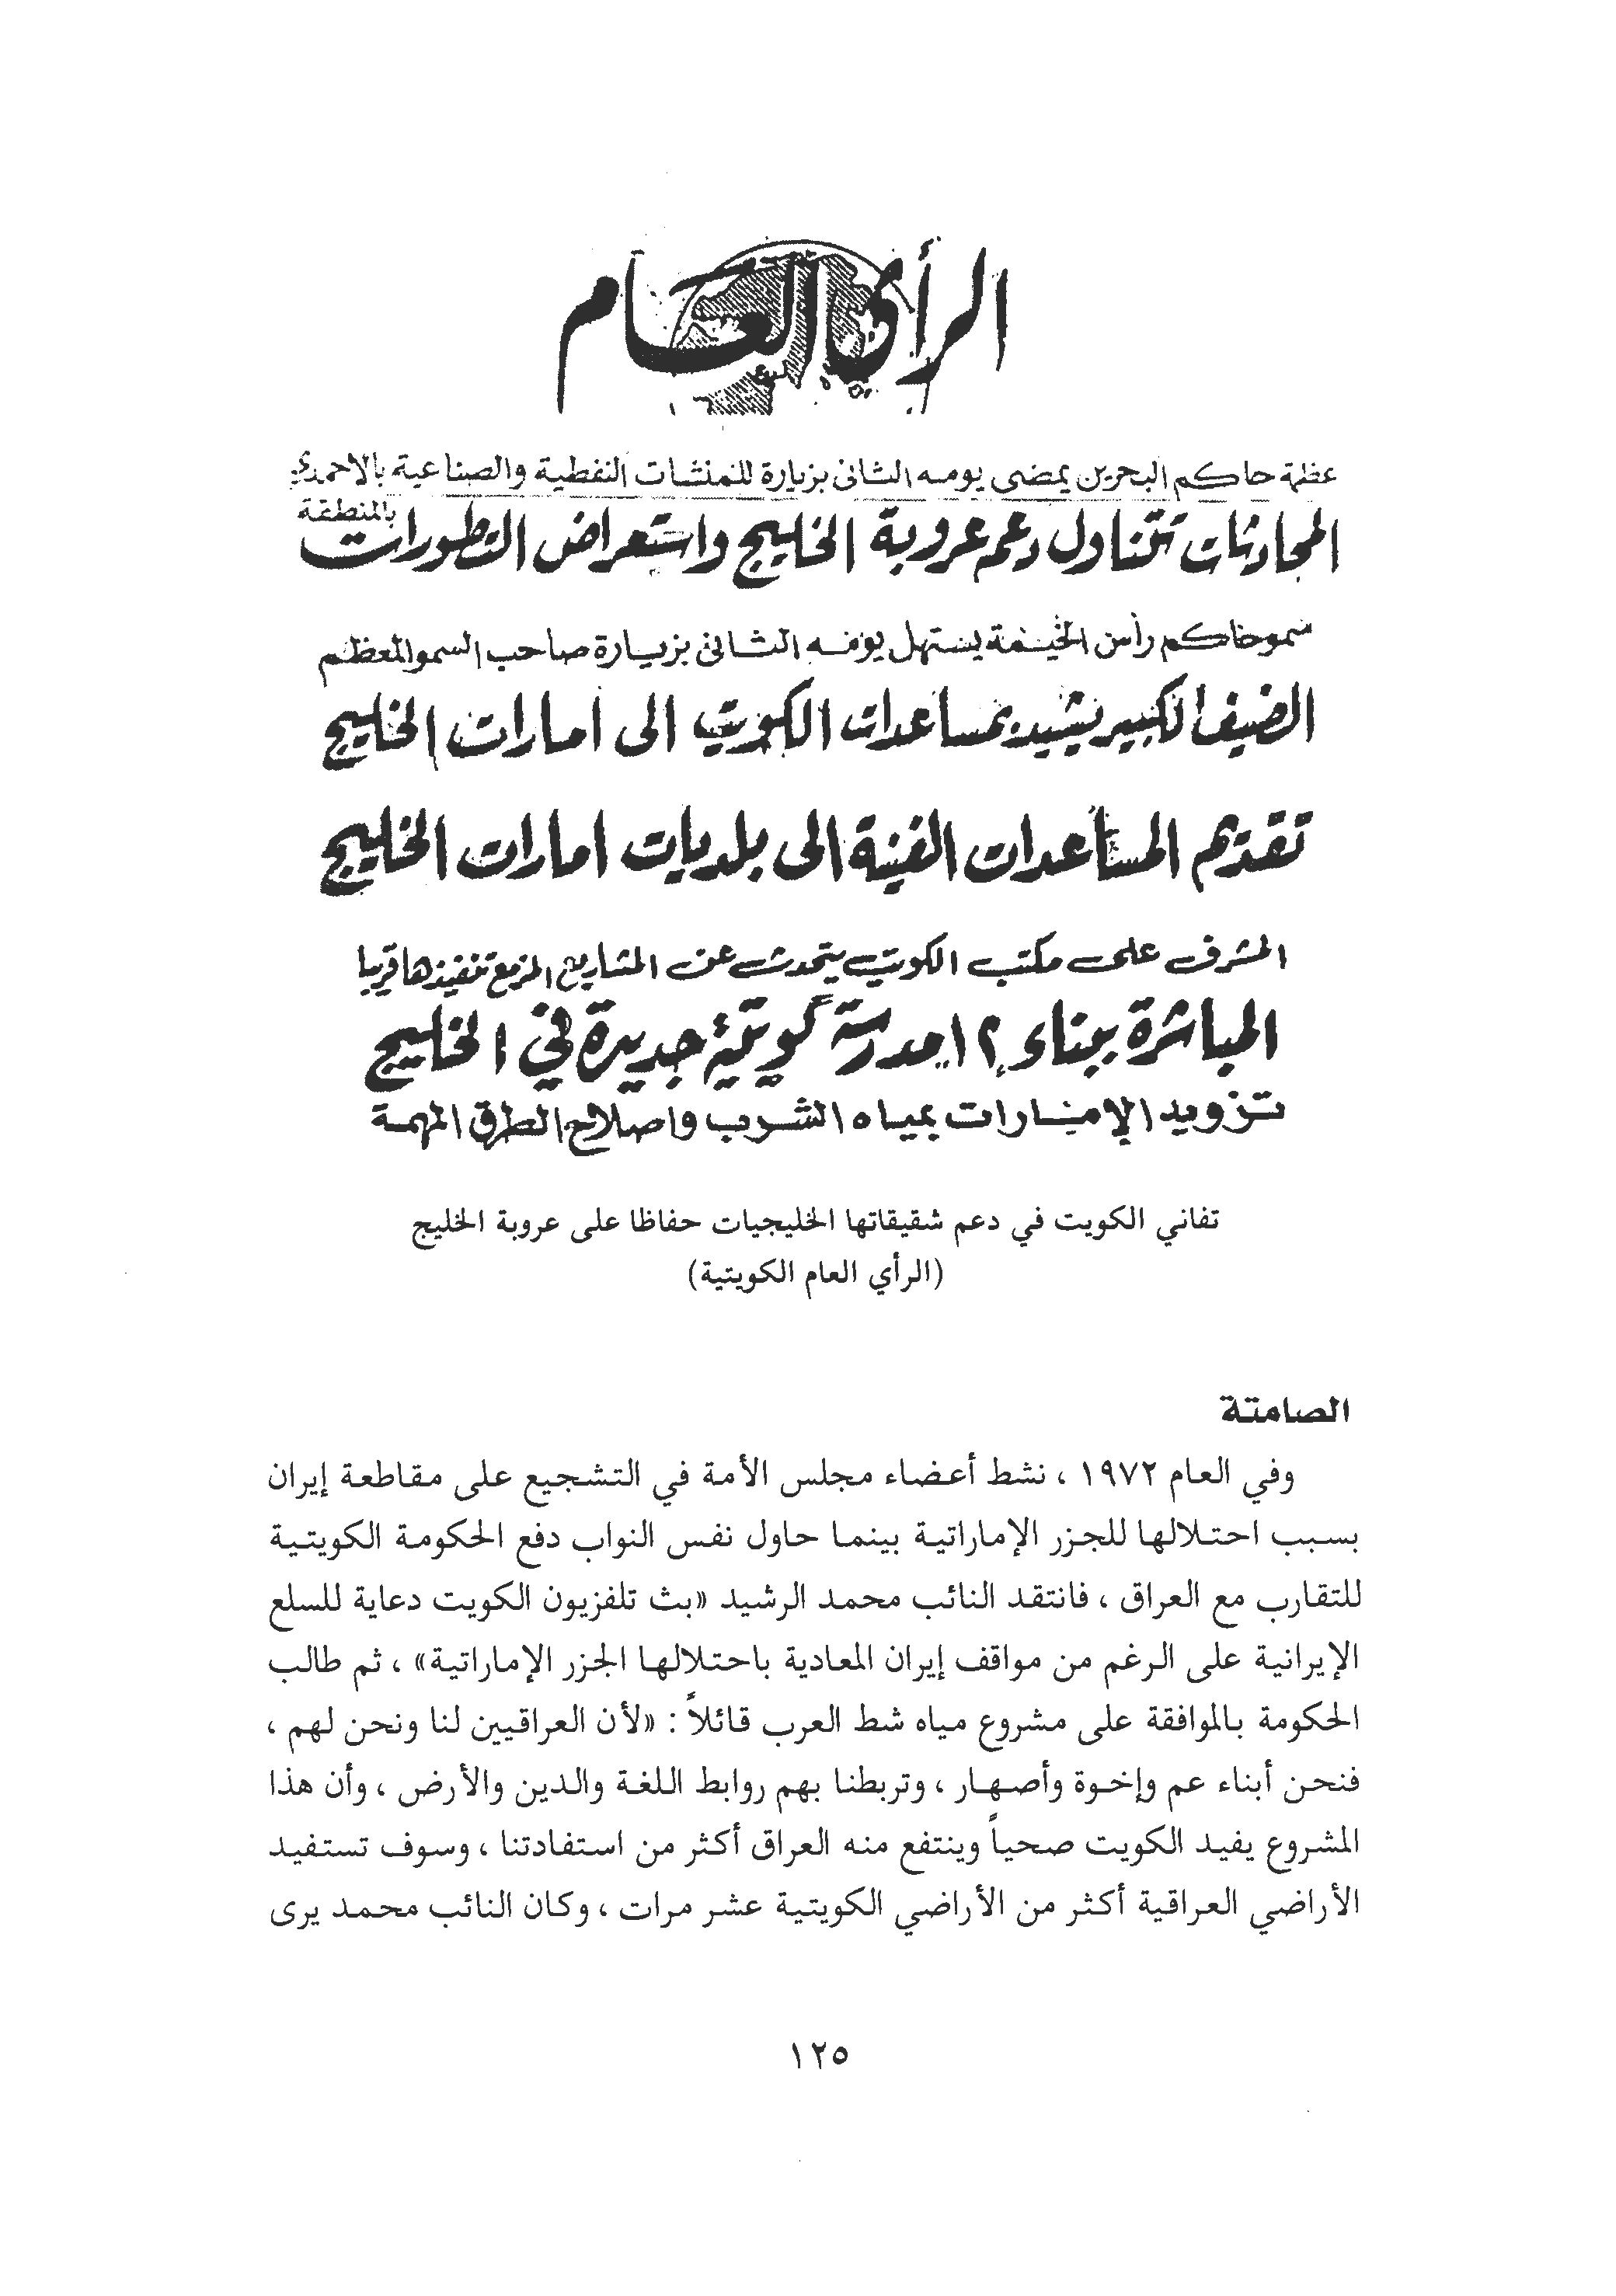 الرأي العام
عظمة حاكم البحرين يمضى يومه الثانى بزيارة للمنشات النفطية والصناعية بالاحمدي
المحادثات تتناول دعم عروبة الخليج واستعراض التطورات بالمنطقة
سمو حاكم رأس الخيمة يستهل يومه الثانى بزيارة صاحب السمو المعظم
الضيف الكبير يشيد بمساعدات الكويت الى امارات الخليج
تقديم المساعدات الفنية الى بلديات امارات الخليج
المشرف على مكتب الكويت يتحدث عن المشاريع المزمع تنفيذها قريبا
المباشرة ببناء ١٢ مدرسة كويتية جديدة في الخليج
تزويد الإمارات بمياه الشرب واصلاح الطرق المهمة
تفاني الكويت في دعم شقيقاتها الخليجيات حفاظا على عروبة الخليج
(الرأي العام الكويتية)
الصامتة
وفي العام ١٩٧٢ ، نشط أعضاء مجلس الأمة في التشجيع على مقاطعة إيران
بسبب احتلالها للجزر الإماراتية بينما حاول نفس النواب دفع الحكومة الكويتية
للتقارب مع العراق ، فانتقد النائب محمد الرشيد «بث تلفزيون الكويت دعاية للسلع
الإيرانية على الرغم من مواقف إيران المعادية باحتلالها الجزر الإماراتية» ، ثم طالب
الحكومة بالموافقة على مشروع مياه شط العرب قائلاً : «لأن العراقيين لنا ونحن لهم ،
فنحن أبناء عم وإخوة وأصهار ، وتربطنا بهم روابط اللغة والدين والأرض ، وأن هذا
المشروع يفيد الكويت صحياً وينتفع منه العراق أكثر من استفادتنا ، وسوف تستفيد
الأراضي العراقية أكثر من الأراضي الكويتية عشر مرات ، وكان النائب محمد يرى
١٢٥